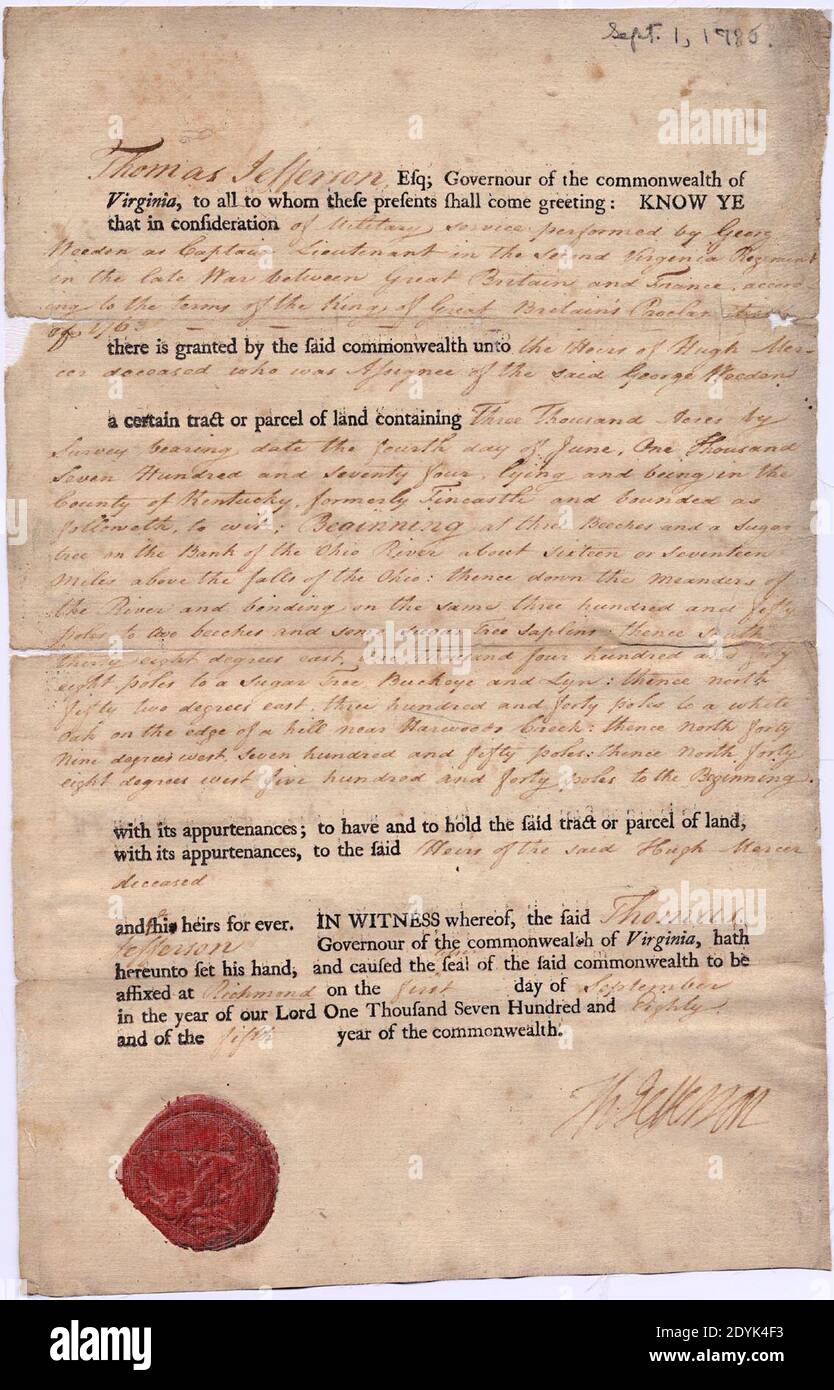 Sept. 1, 1780.
Thomas Jefferson, Esq; Governour of the commonwealth of
Virginia, to all to whom theſe preſents ſhall come greeting: KNOW YE
that in conſideration of Military service performed by Georg
Weedon as Captain Lieutenant in the Second Virginia Regiment
in the late War between Great Britain and France, accord
ing to the terms of the King of Great Britain's Proclamation
of 1763
there is granted by the ſaid commonwealth unto the Heirs of Hugh Mer-
cer deceased who was Aſsignee of the said George Weedon
a certain tract or parcel of land containing Three Thousand Acres by
Survey bearing date the fourth day of June, One Thousand
Seven Hundred and Seventy four, lying and being in the
County of Kentucky, formerly Fincastle and bounded as
followeth, to wit; Beginning at three Beeches and a Sugar
tree on the Bank of the Ohio River about Sixteen or Seventeen
Miles above the falls of the Ohio: thence down the meanders of
the River and bending on the same three hundred and fifty
poles to two beeches and some Sugar Tree Saplins thence South
thirty eight degrees east, thousand four hundred and
eight poles to a Sugar Tree Buckeye and Lyn: thence north
fifty two degrees east, three hundred and forty poles to a white
oak on the edge of a hill near Harwoods Creek: thence North forty
nine degrees west, Seven hundred and fifty poles: thence North forty
eight degrees west five hundred and forty poles to the Beginning.
with its appurtenances; to have and to hold the ſaid tract or parcel of land,
with its appurtenances, to the ſaid Heirs of the said Hugh Mercer
deceased
and his heirs for ever. IN WITNESS whereof, the ſaid Thomas
Jefferson Governour of the commonwealth of Virginia, hath
hereunto ſet his hand, and cauſed the ſeal of the ſaid commonwealth to be
affixed at Richmond on the first day of September
in the year of our Lord One Thouſand Seven Hundred and Eighty
and of the fifth year of the commonwealth.
Th Jefferson
alamy
Image ID: 2DYK4F3
www.alamy.com